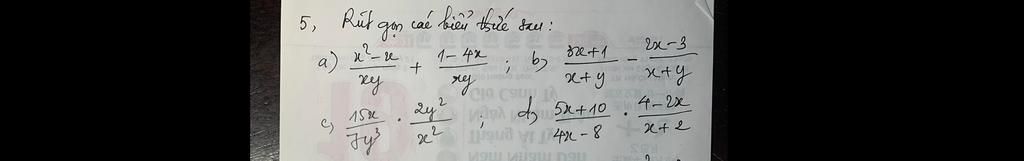 5, Rút gọn các biểu thức sau:
a) \frac{x^2-x}{xy} + \frac{1-4x}{xy} ; b) \frac{3x+1}{x+y} - \frac{2x-3}{x+y}
c, \frac{15x}{7y^3} \cdot \frac{2y^2}{x^2} ; d, \frac{5x+10}{4x-8} \cdot \frac{4-2x}{x+2}